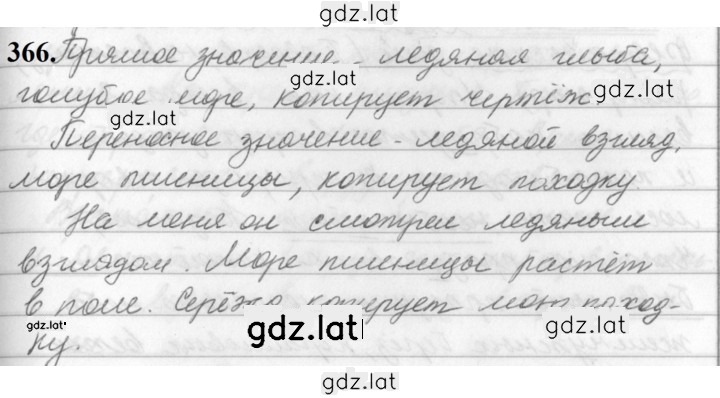 gdz.lat
366. Прямое значение - ледяная глыба,
gdz.lat
голубое море, копирует чертёж gdz.lat
gdz.lat
Переносное значение - ледяной взгляд,
море пшеницы, копирует походку
На меня он смотрел ледяным
взглядом. Море пшеницы растёт
в поле. Серёжа копирует мою поход-
gdz.lat gdz.lat gdz.lat
ку.
gdz.lat